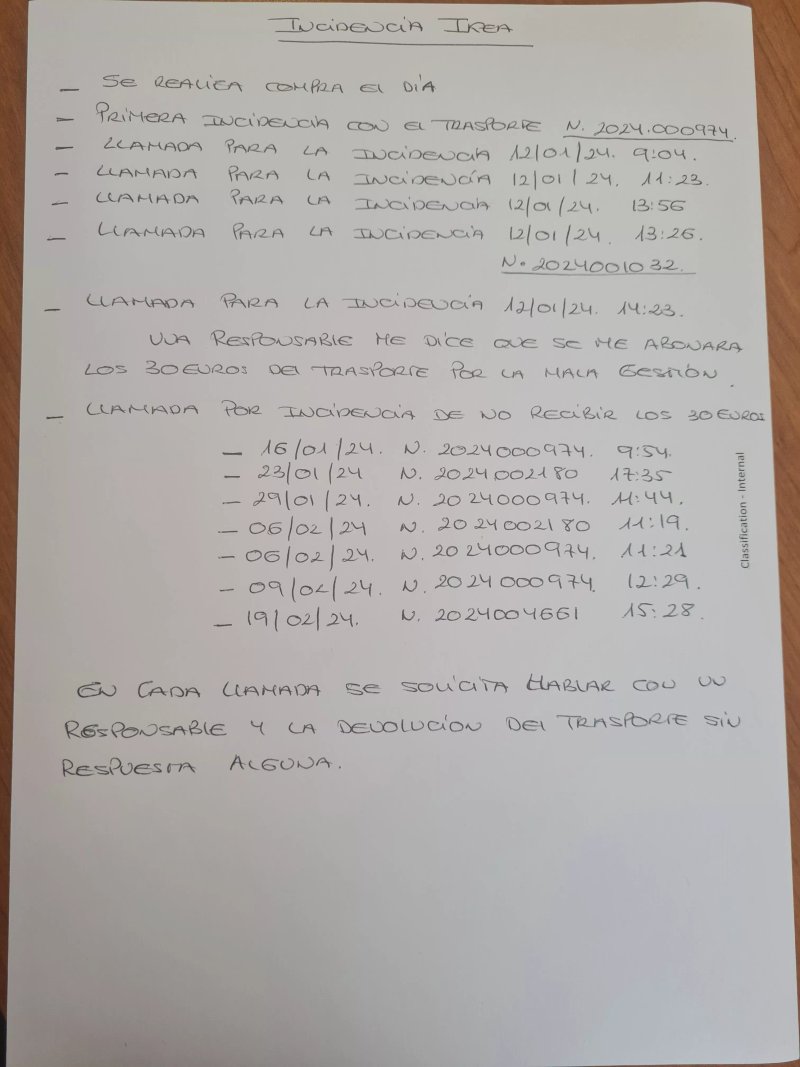 INCIDENCIA IKEA
– SE REALICA COMPRA EL DÍA
– PRIMERA INCIDENCIA CON EL TRASPORTE N. 2024.000974.
– LLAMADA PARA LA INCIDENCIA 12/01/24. 9:04.
– LLAMADA PARA LA INCIDENCÍA 12/01/24. 11:23.
– LLAMADA PARA LA INCIDENCIA 12/01/24. 13:56
– LLAMADA PARA LA INCIDENCIA 12/01/24. 13:26.
N. 2024001032.
– LLAMADA PARA LA INCIDENCÍA 12/01/24. 14:23.
UNA RESPONSABLE ME DICE QUE SE ME ABONARA
LOS 30 EUROS DEL TRASPORTE POR LA MALA GESTIÓN.
– LLAMADA POR INCIDENCIA DE NO RECIBIR LOS 30 EUROS
– 16/01/24. N. 2024000974. 9:54.
– 23/01/24 N. 2024002180 17:35
– 29/01/24. N. 2024000974. 11:44.
– 06/02/24 N. 2024002180 11:19.
– 06/02/24. N. 2024000974. 11:21
– 09/02/24. N. 2024000974. 12:29.
– 19/02/24. N. 2024004661 15:28.
EN CADA LLAMADA SE SOLICITA HABLAR CON UN
RESPONSABLE Y LA DEVOLUCION DEL TRASPORTE SIN
RESPUESTA ALGUNA.
Classification - Internal